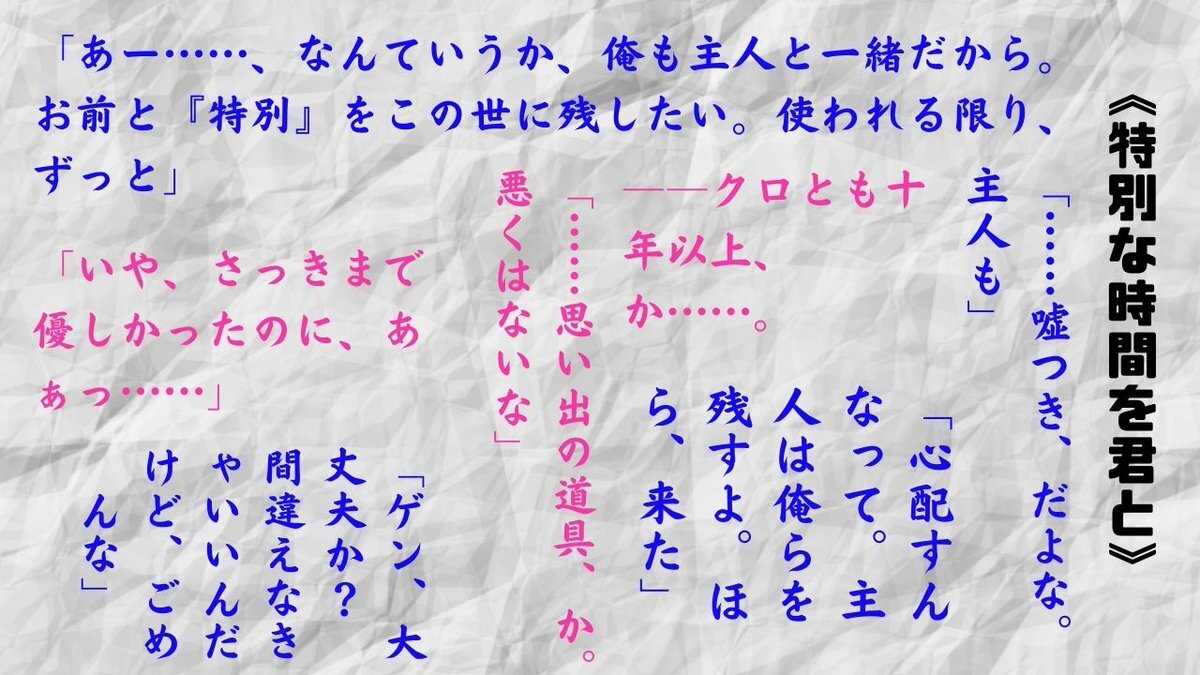 《特別な時間を君と》
「あー……、なんていうか、俺も主人と一緒だから。
お前と『特別』をこの世に残したい。使われる限り、
ずっと」
「……嘘つき、だよな。
主人も」
――クロとも十
年以上、
か……。
「心配すん
なって。主
人は俺らを
残すよ。ほ
ら、来た」
「……思い出の道具、か。
悪くはないな」
「いや、さっきまで
優しかったのに、あ
ぁっ……」
「ゲン、大
丈夫か？
間違えなき
ゃいいんだ
けど、ごめ
んな」